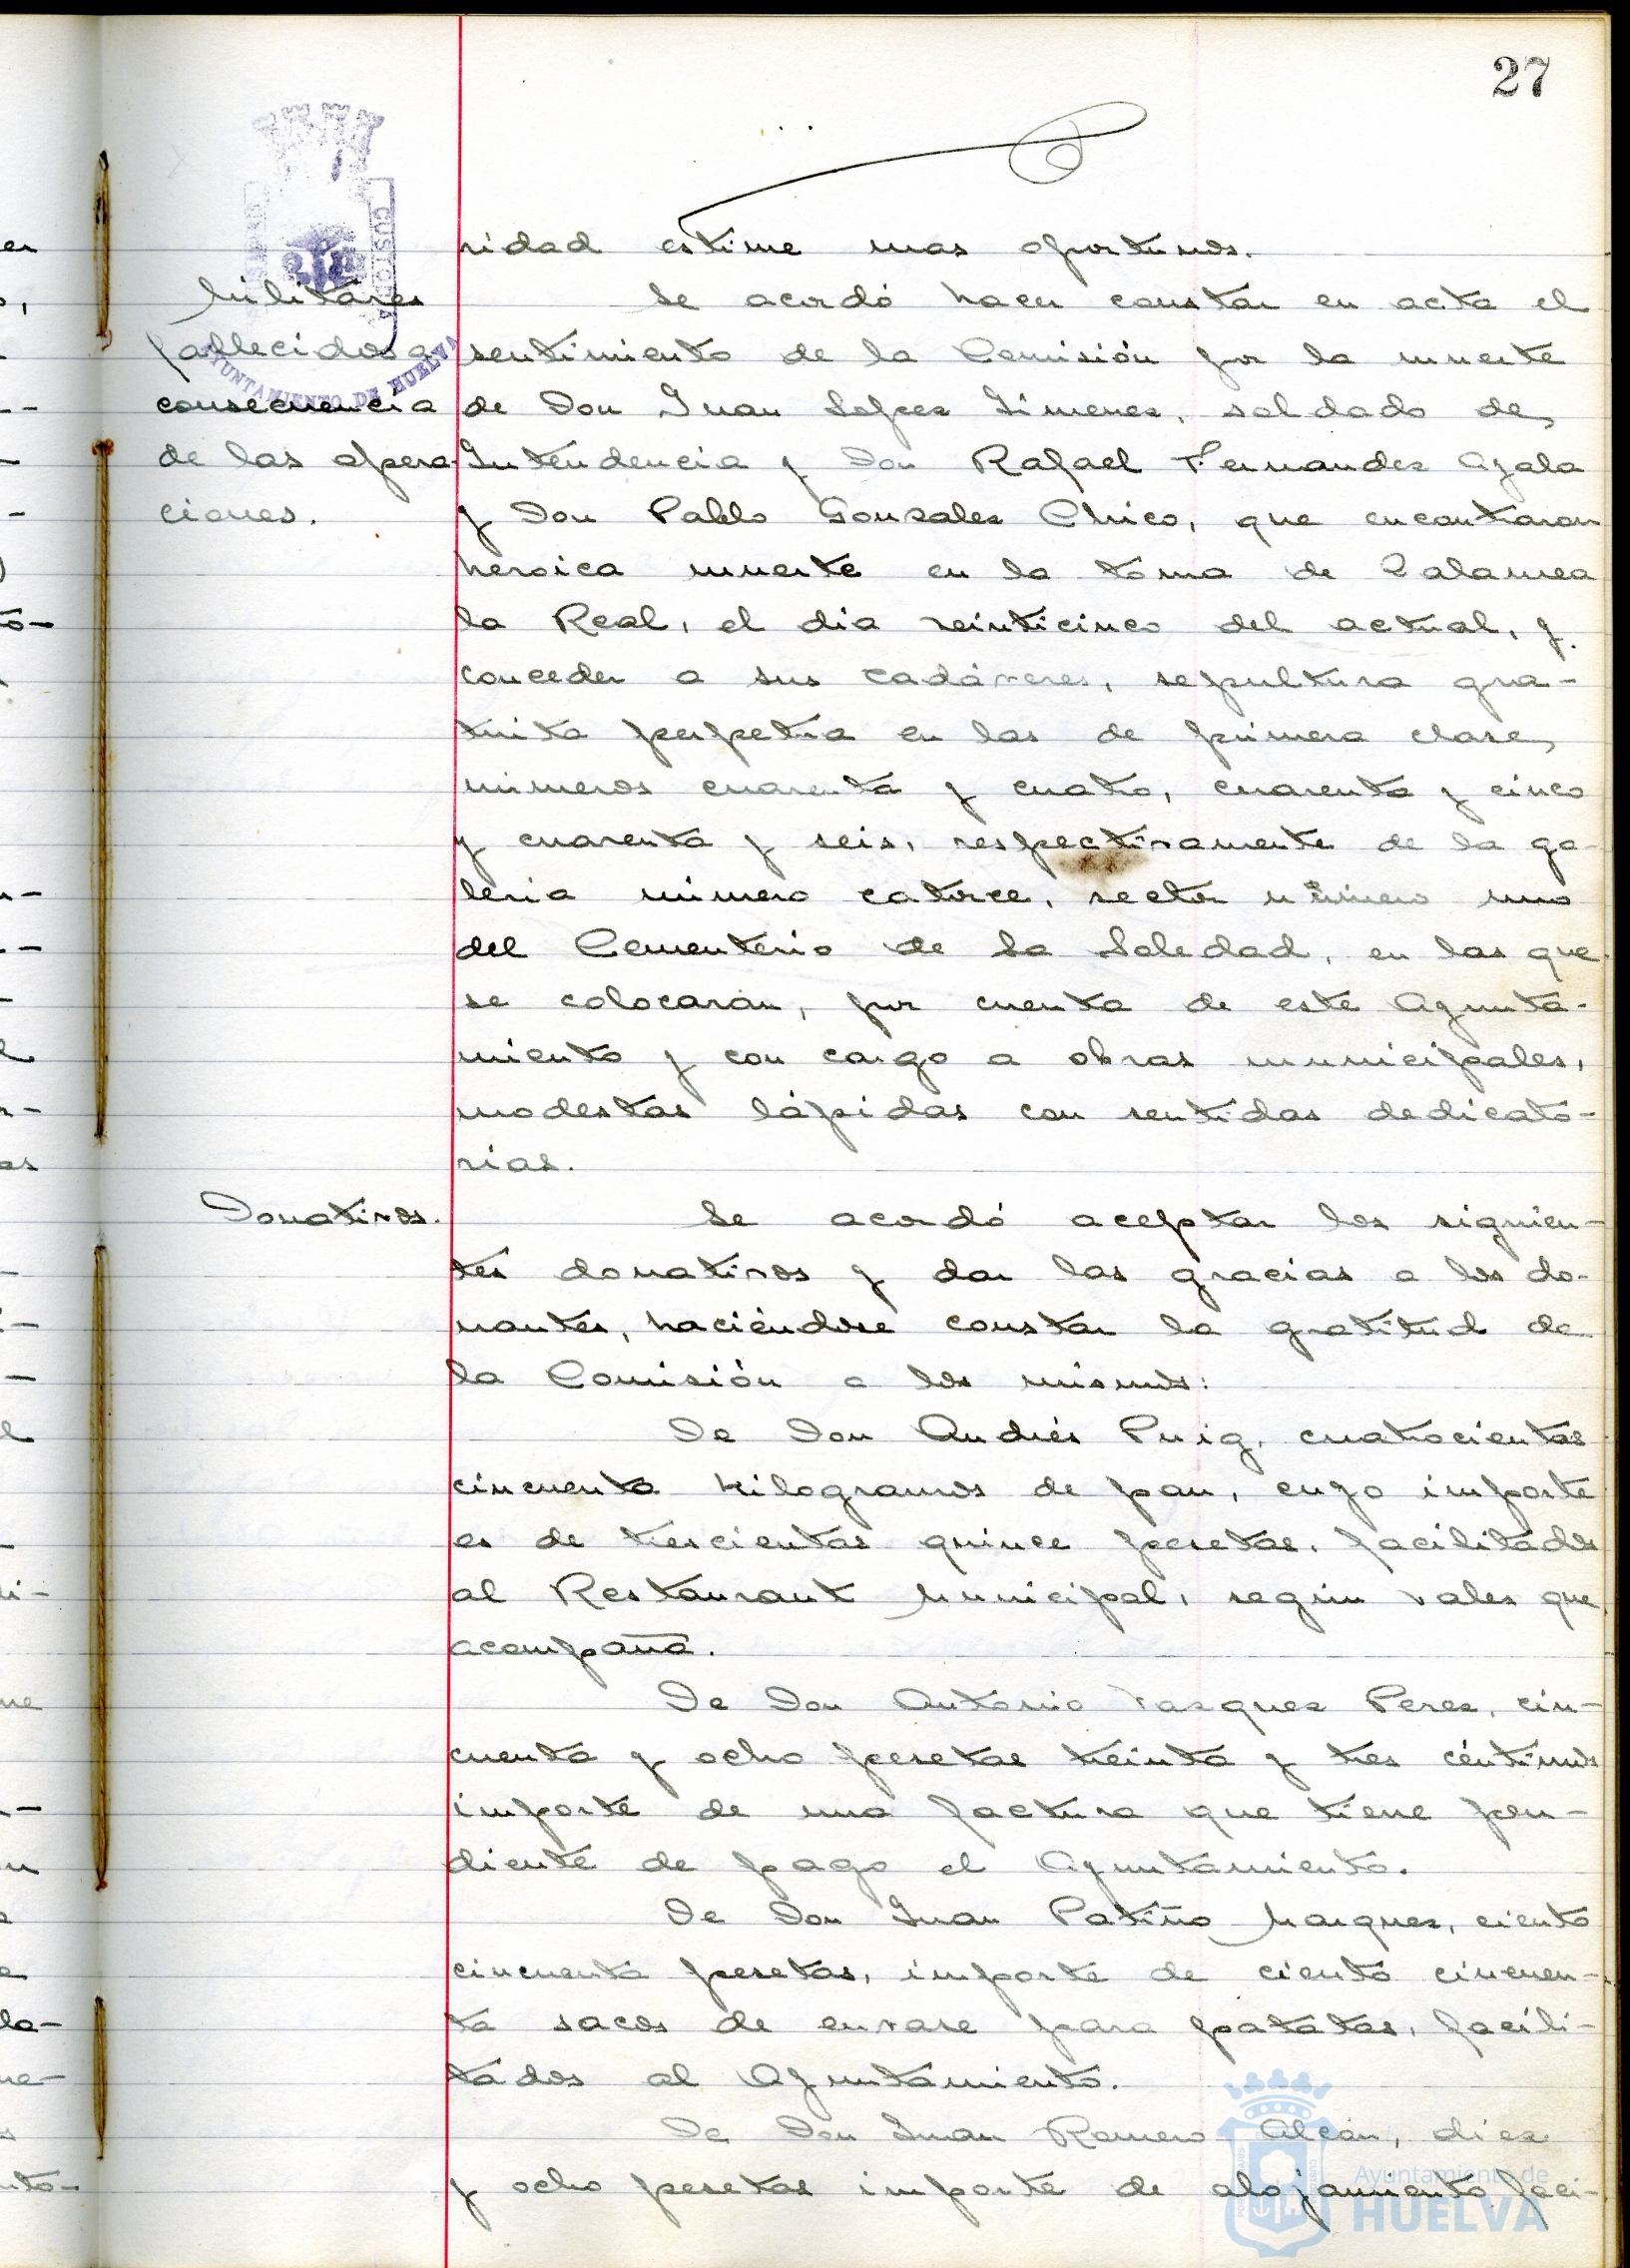 27
ridad estime mas oportunos.
Militares
fallecidos a
consecuencia
de las opera
ciones.
Se acordó hacer constar en acta el
sentimiento de la Comisión por la muerte
de Don Juan Lopez Jimenez, soldado de
Intendencia y Don Rafael Fernandez Ayala
y Don Pablo Gonzalez Chico, que encontraron
heroica muerte en la toma de Zalamea
la Real, el dia veinticinco del actual, y
conceder a sus cadáveres, sepultura gra-
tuita perpetua en las de primera clase,
números cuarenta y cuatro, cuarenta y cinco
y cuarenta y seis, respectivamente de la ga-
leria número catorce, sector número uno
del Cementerio de La Soledad, en las que
se colocarán, por cuenta de este Ayunta-
miento y con cargo a obras municipales,
modestas lápidas con sentidas dedicato-
rias.
Donativos.
Se acordó aceptar los siguien-
tes donativos y dar las gracias a los do-
nantes, haciéndose constar la gratitud de
la Comisión a los mismos:
De Don Andrés Puig, cuatrocientos
cincuenta kilogramos de pan, cuyo importe
es de trescientas quince pesetas, facilitados
al Restaurant Municipal, según vales que
acompaña.
De Don Antonio Vazquez Perez, cin-
cuenta y ocho pesetas treinta y tres céntimos
importe de una factura que tiene pen-
diente de pago el Ayuntamiento.
De Don Juan Patiño Marquez, ciento
cincuenta pesetas, importe de ciento cincuen-
ta sacos de envase para patatas, facili-
tados al Ayuntamiento.
De Don Juan Romero Alcón, diez
y ocho pesetas importe de alojamiento faci-
CUSTODIA
AYUNTAMIENTO DE HUELVA
Ayuntamiento de
HUELVA